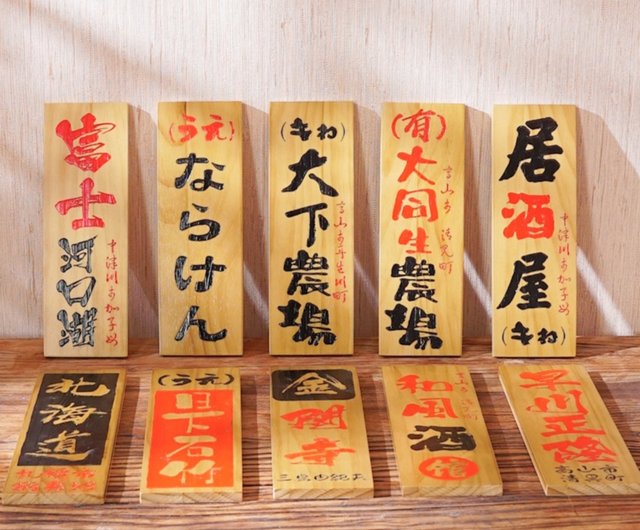 富士
河口湖
中津川市加子母
(う元)
ならけん
(キね)
大下農場
高山市丹生川町
(有)
大同生農場
高山市清見町
居酒屋
(キね)
中津川市加子母
北海道
(う元)
日下石竹
金閣寺
和風酒館
早川正隆
高山市
清見町